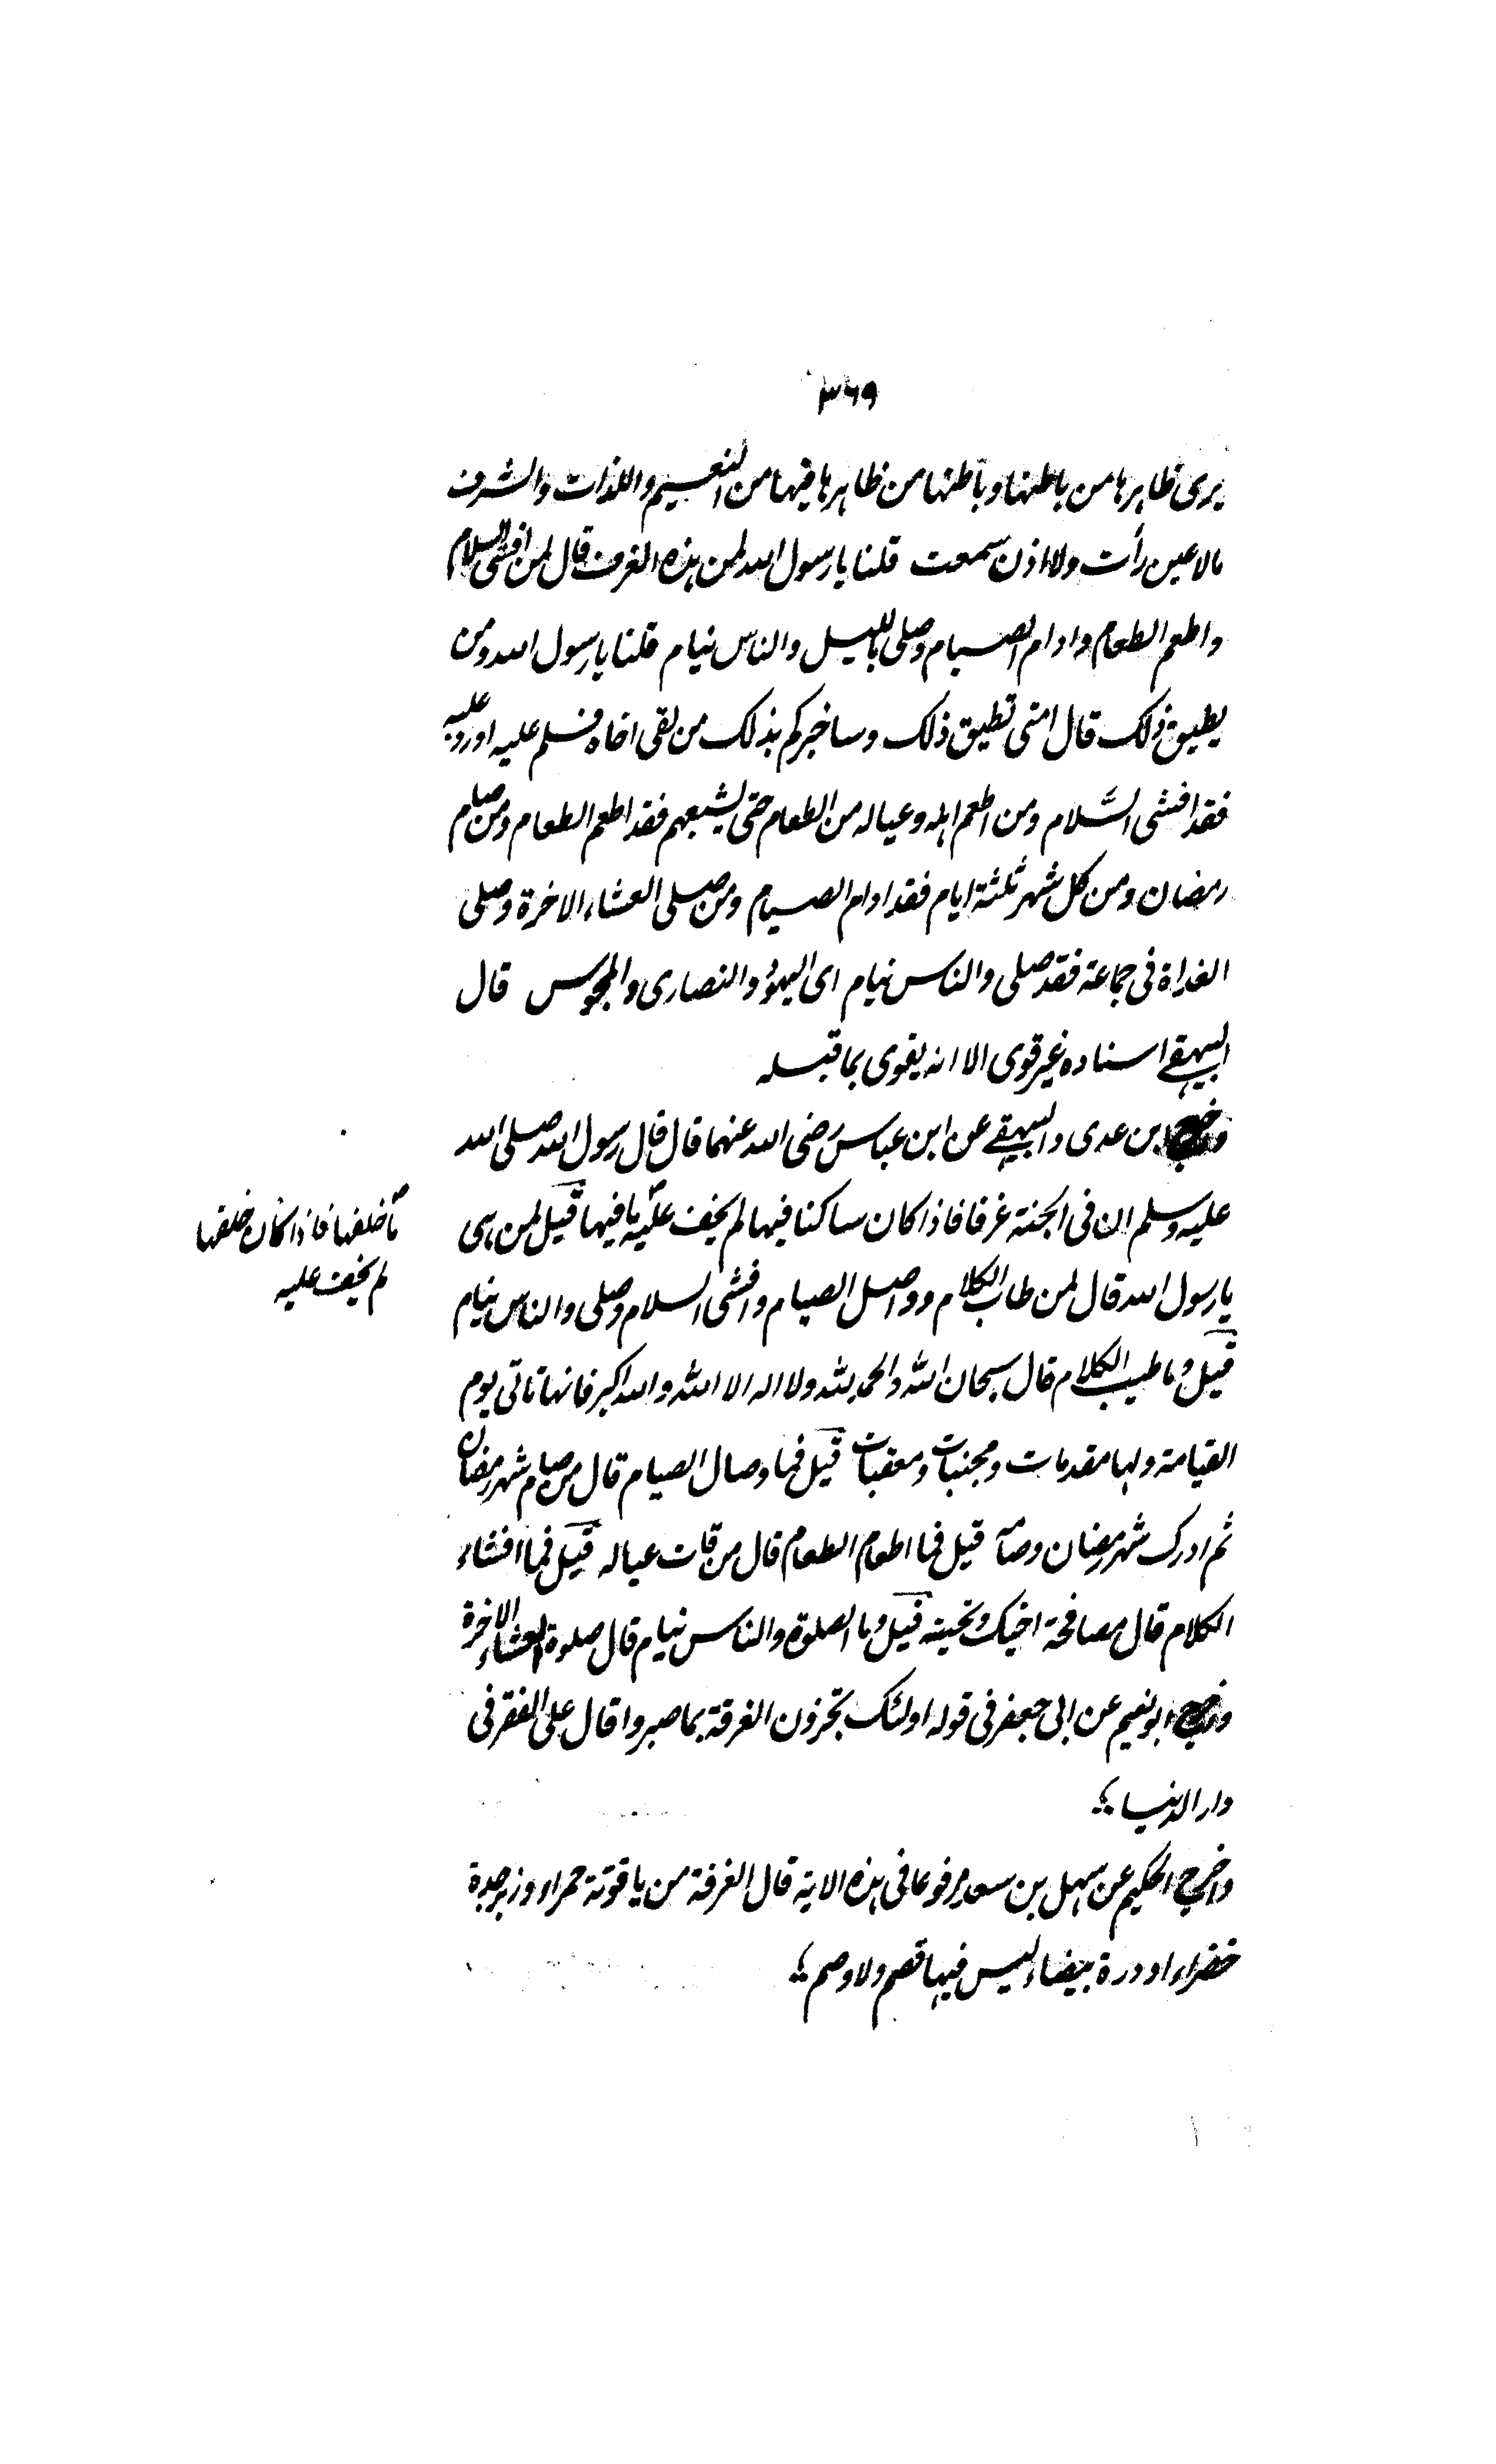 ٣٦٩
يرى ظاهرها من باطنها وباطنها من ظاهرها فيها من النعيم واللذات والشرف
مالا عين رأت ولا اذن سمعت قلنا يا رسول الله لمن هذه الغرف قال لمن افشى السلام
واطعم الطعام وادام الصيام وصلى بالليل والناس نيام قلنا يا رسول الله ومن
يطيق ذلك قال امتى تطيق ذلك وساخبركم بذلك من لقى اخاه فسلم عليه اورد عليه
فقد افشى السّلام ومن اطعم اهله وعياله من الطعام حتى يشبعهم فقد اطعم الطعام ومن صام
رمضان ومن كل شهر ثلثة ايام فقد ادام الصيام ومن صلى العشاء الاخرة وصلى
الغداة فى جماعة فقد صلى والناس نيام اى اليهود والنصارى والمجوس قال
البيهقے اسناده غير قوى الا انه يقوى بما قبله
واخرج ابن عدى والبيهقے عن ابن عباس رضى الله عنهما قال قال رسول الله صلى الله
عليه وسلم ان فى الجنة غرفا فاذا كان ساكنا فيها لم يخف عليه ما فيها قيل لمن هى
ما خلفها فاذا كان خلفها
لم يخف عليه
يا رسول الله قال لمن طاب الكلام وواصل الصيام وافشى السلام وصلى والناس نيام
قيل وما طيب الكلام قال سبحان الله والحمد لله ولا اله الا الله والله اكبر فانها تاتى يوم
القيامة ولها مقدمات ومجنبات ومعقبات قيل فما وصال الصيام قال من صام شهر رمضان
ثم ادرك شهر رمضان وصام قيل فما اطعام الطعام قال من قات عياله قيل فما افشاء
الكلام قال مصافحة اخيك وتحيته قيل وما الصلوة والناس نيام قال صلوة العشاء الاخرة
واخرج ابو نعيم عن ابى جعفر فى قوله اولئك يجزون الغرفة بما صبروا قال على الفقر فى
دار الدنيا
واخرج الحكيم عن سهل بن سعد مرفوعا فى هذه الاية قال الغرفة من ياقوتة حمراء وزبرجدة
خضراء او درة بيضاء ليس فيها قصم ولا وصم